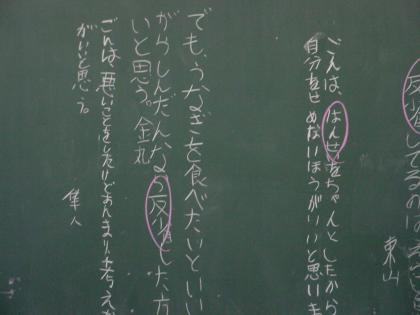 反省してるのは
東山
ごんは、はんせいをちゃんとしたから
自分をせめないほうがいいと思いま
でも、うなぎを食べたいといい
がらしんだんなら反省した方
いいと思う。金丸
ごんは悪いことをしたけどあんまり考えな
がいいと思う。
隼人